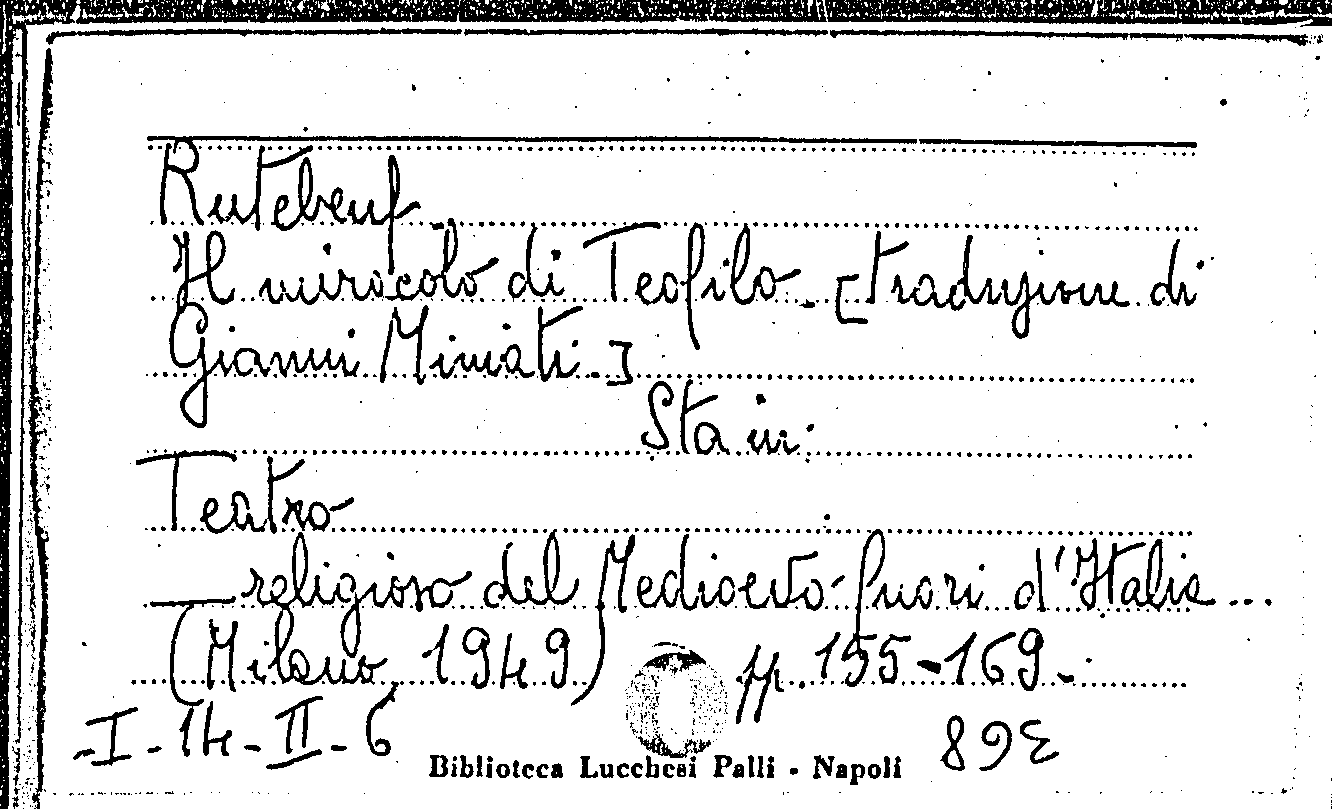 Rutebeuf
Il miracolo di Teofilo. [traduzione di
Gianni Miniati.]
Sta in:
Teatro
__ religioso del Medioevo fuori d'Italia...
(Milano, 1949) pp. 155-169.
-I-14-II-6
Biblioteca Lucchesi Palli - Napoli